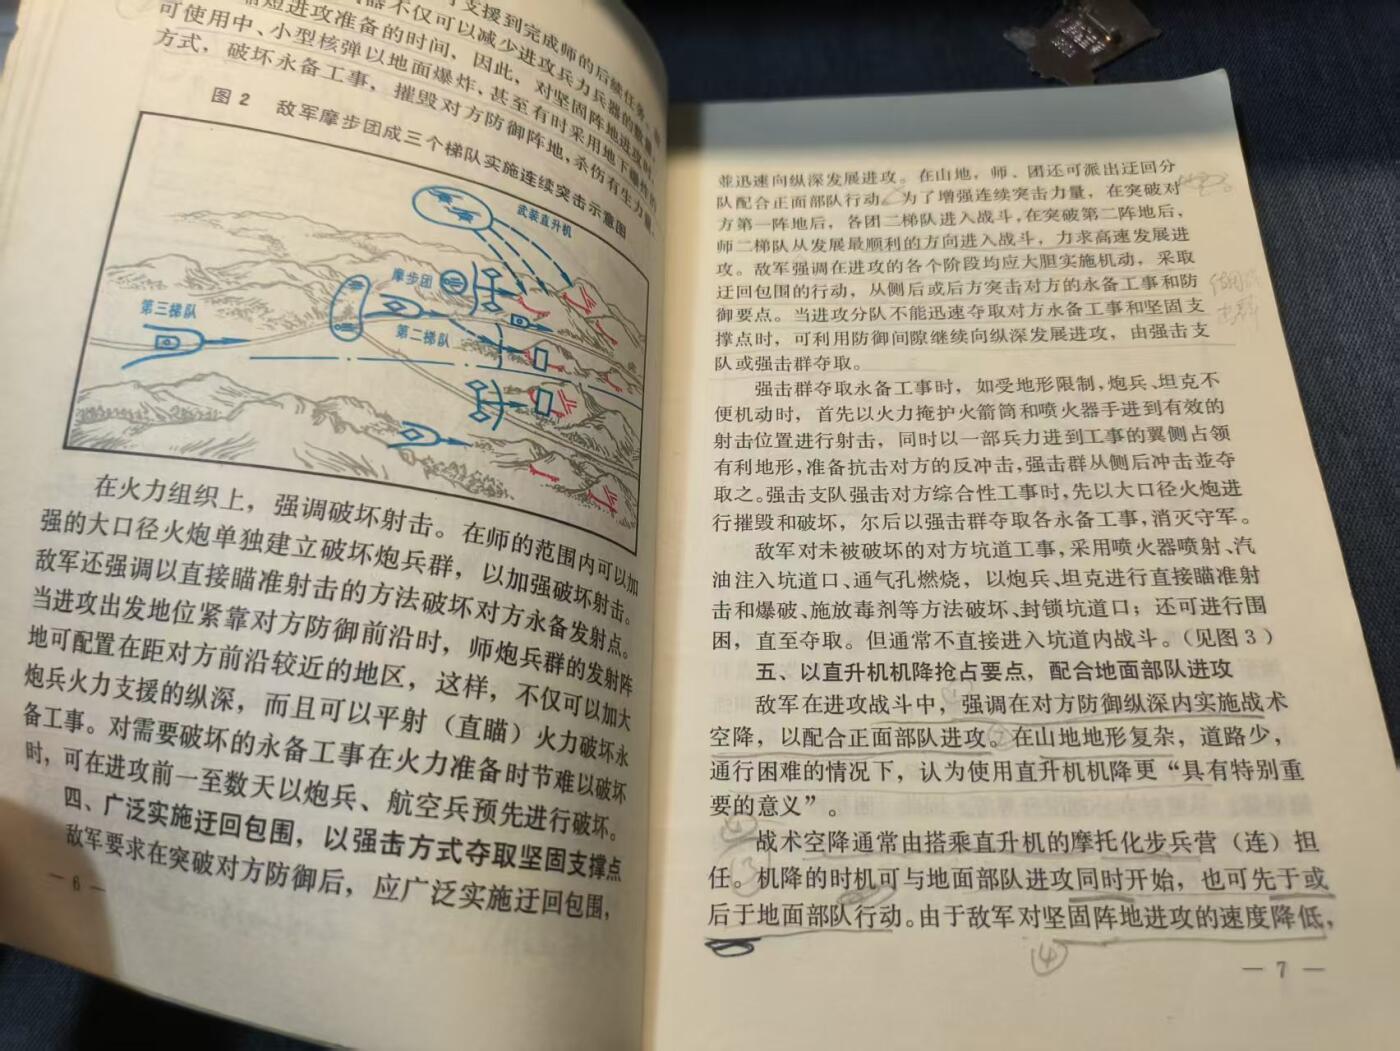 支援到完成师的后续任务
缩短进攻准备的时间，因此，对坚固阵地进攻时，
器不仅可以减少进攻兵力兵器的数量，
可使用中、小型核弹以地面爆炸，甚至有时采用地下爆炸的
方式，破坏永备工事，摧毁对方防御阵地，杀伤有生力量。
图2 敌军摩步团成三个梯队实施连续突击示意图
武装直升机
摩步团
第三梯队
第二梯队
在火力组织上，强调破坏射击。在师的范围内可以加
强的大口径火炮单独建立破坏炮兵群，以加强破坏射击。
敌军还强调以直接瞄准射击的方法破坏对方永备发射点。
当进攻出发地位紧靠对方防御前沿时，师炮兵群的发射阵
地可配置在距对方前沿较近的地区，这样，不仅可以加大
炮兵火力支援的纵深，而且可以平射（直瞄）火力破坏永
备工事。对需要破坏的永备工事在火力准备时节难以破坏
时，可在进攻前一至数天以炮兵、航空兵预先进行破坏。
四、广泛实施迂回包围，以强击方式夺取坚固支撑点
敌军要求在突破对方防御后，应广泛实施迂回包围，
— 6 —
並迅速向纵深发展进攻。在山地，师、团还可派出迂回分
队配合正面部队行动。为了增强连续突击力量，在突破对
方第一阵地后，各团二梯队进入战斗，在突破第二阵地后，
师二梯队从发展最顺利的方向进入战斗，力求高速发展进
攻。敌军强调在进攻的各个阶段均应大胆实施机动，采取
迂回包围的行动，从侧后或后方突击对方的永备工事和防
御要点。当进攻分队不能迅速夺取对方永备工事和坚固支
撑点时，可利用防御间隙继续向纵深发展进攻，由强击支
队或强击群夺取。
强击群夺取永备工事时，如受地形限制，炮兵、坦克不
便机动时，首先以火力掩护火箭筒和喷火器手进到有效的
射击位置进行射击，同时以一部兵力进到工事的翼侧占领
有利地形，准备抗击对方的反冲击，强击群从侧后冲击並夺
取之。强击支队强击对方综合性工事时，先以大口径火炮进
行摧毁和破坏，尔后以强击群夺取各永备工事，消灭守军。
敌军对未被破坏的对方坑道工事，采用喷火器喷射、汽
油注入坑道口、通气孔燃烧，以炮兵、坦克进行直接瞄准射
击和爆破、施放毒剂等方法破坏、封锁坑道口；还可进行围
困，直至夺取。但通常不直接进入坑道内战斗。（见图3）
五、以直升机机降抢占要点，配合地面部队进攻
敌军在进攻战斗中，强调在对方防御纵深内实施战术
空降，以配合正面部队进攻。在山地地形复杂，道路少，
通行困难的情况下，认为使用直升机机降更“具有特别重
要的意义”。
战术空降通常由搭乘直升机的摩托化步兵营（连）担
任。机降的时机可与地面部队进攻同时开始，也可先于或
后于地面部队行动。由于敌军对坚固阵地进攻的速度降低，
④
— 7 —